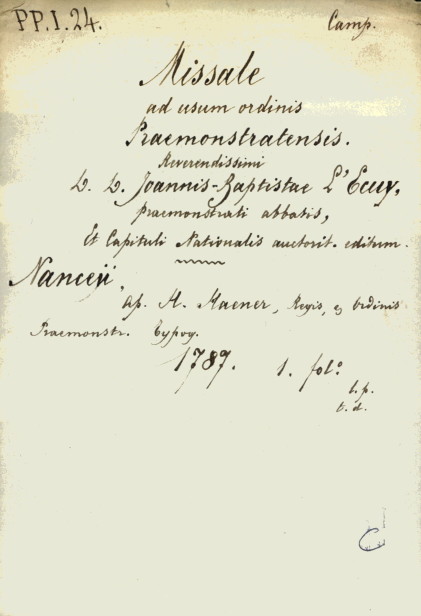 PP.I.24.
Camp.
Missale
ad usum ordinis
Praemonstratensis.
Reverendissimi
D. D. Joannis-Baptistae L'Ecuy,
Praemonstrati abbatis,
Et Capituli Nationalis auctorit. editum.
Nanceji,
ap. H. Haener, Regis, & Ordinis
Praemonstr. Typog.
1787. 1. fol°
b.p.
t.d.
C